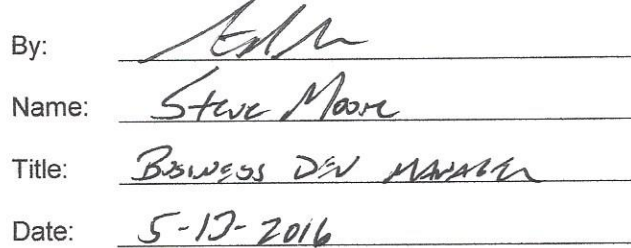 By:
Name: Steve Moore
Title: Business Dev Manager
Date: